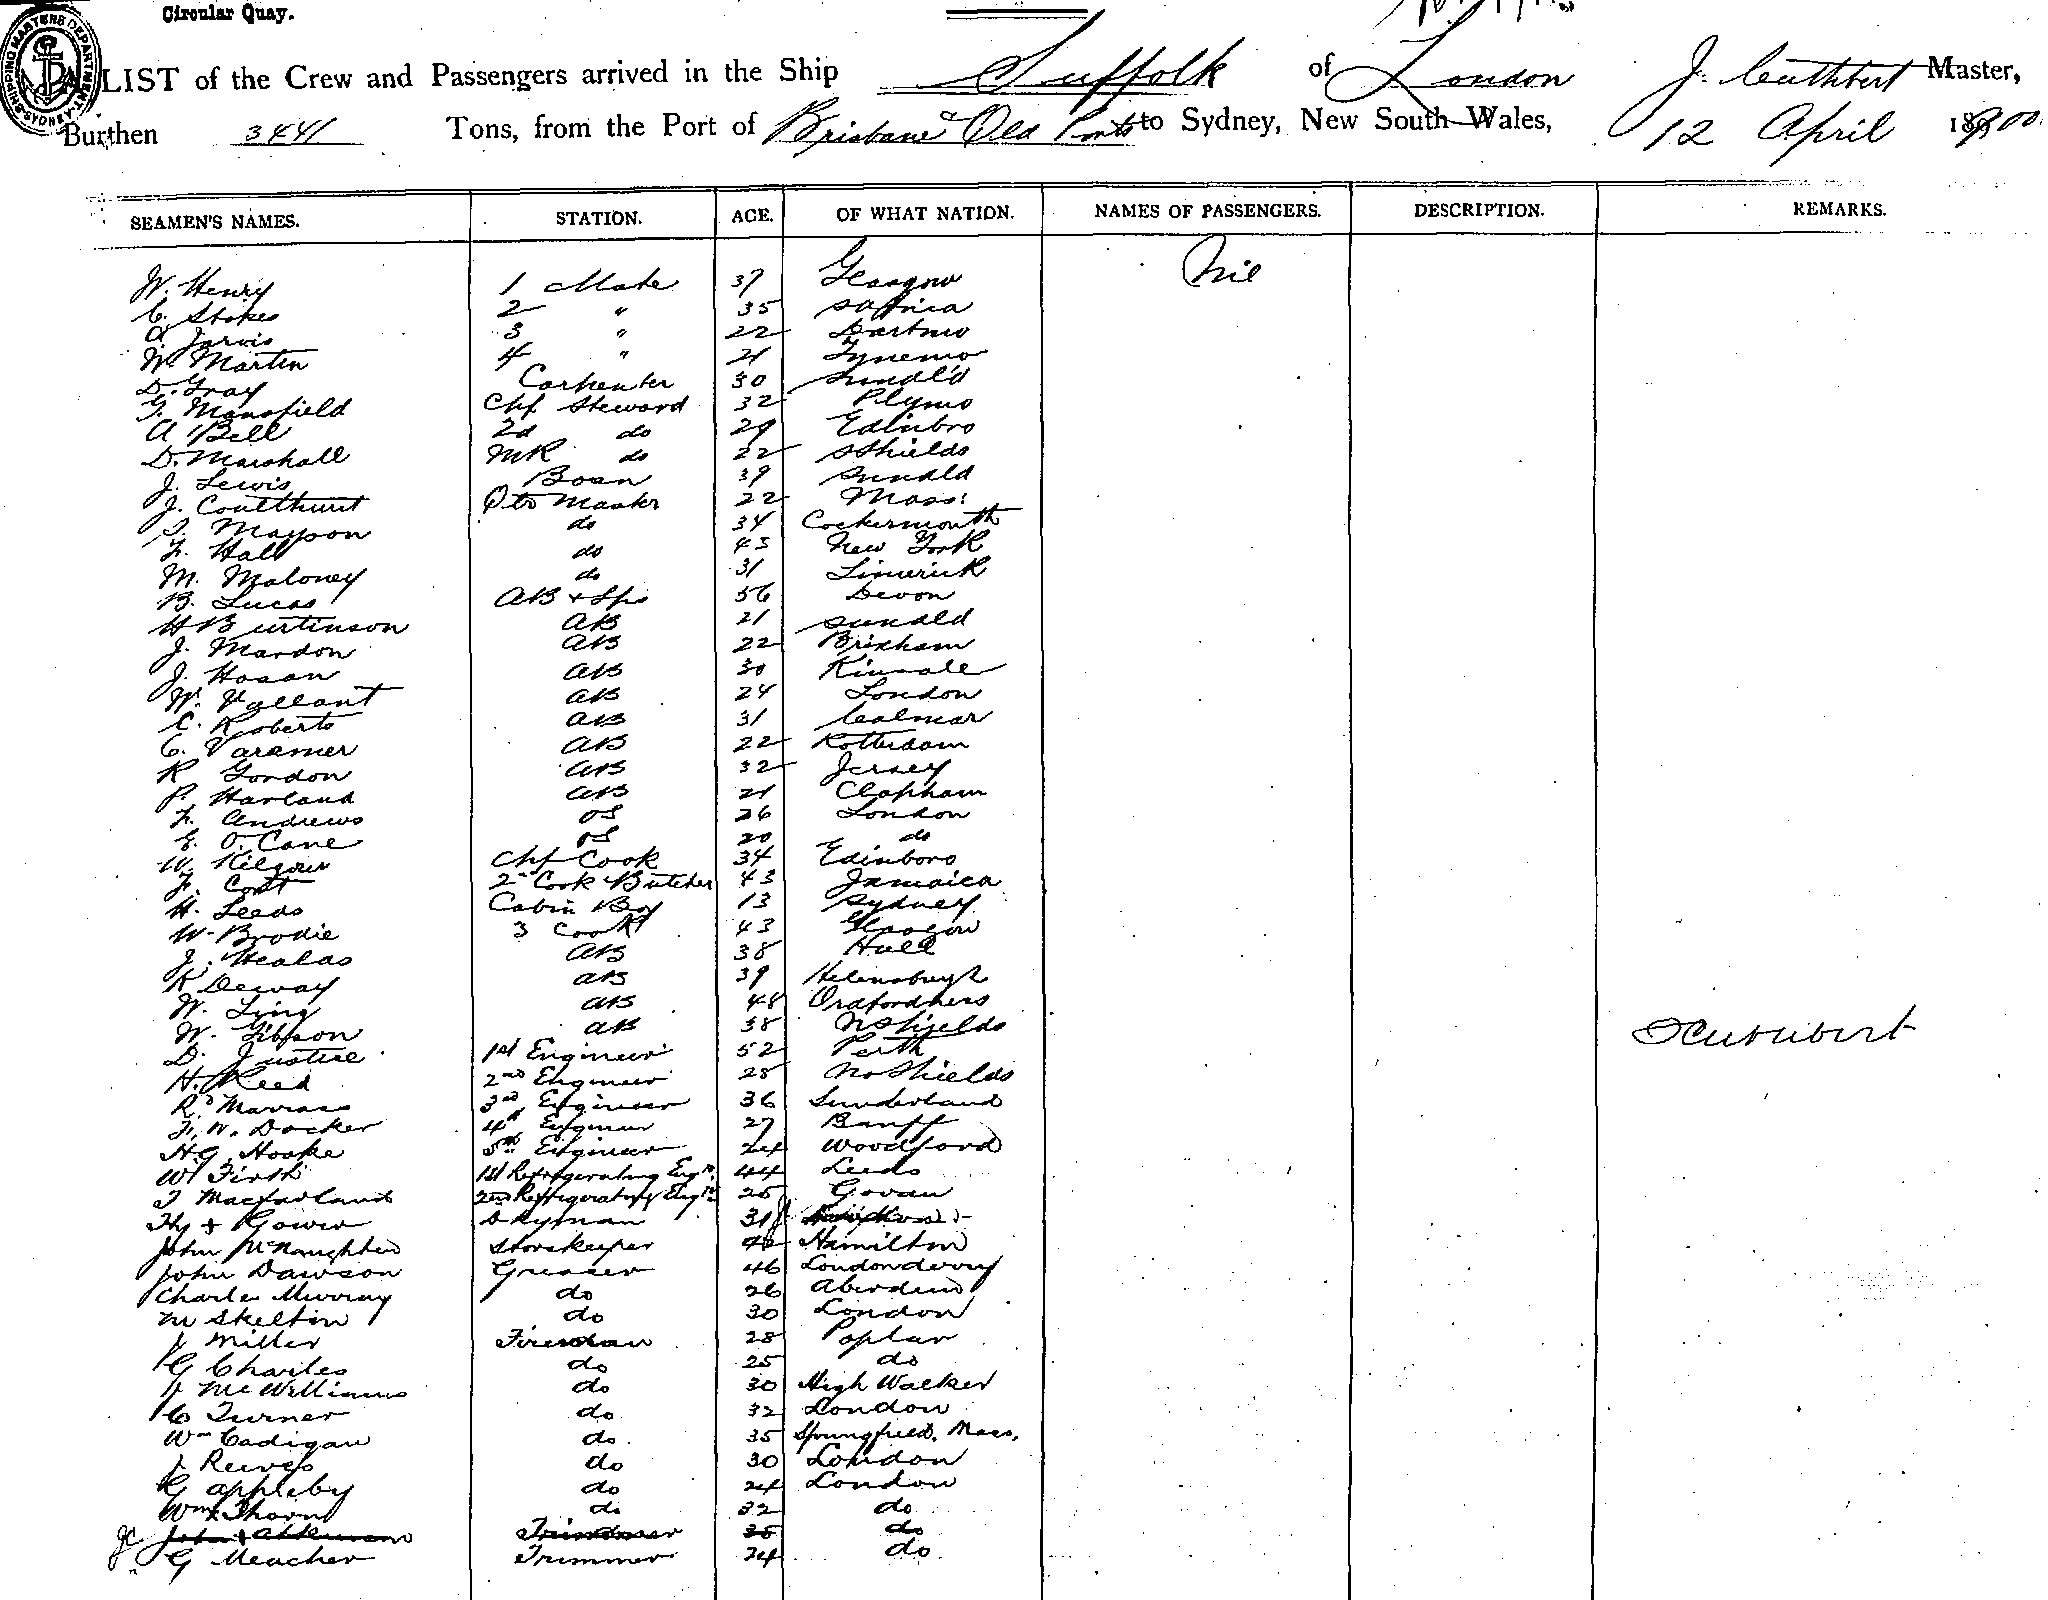 Circular Quay.
SHIPPING MASTERS DEPARTMENT SYDNEY
LIST of the Crew and Passengers arrived in the Ship Suffolk of London J. Cuthbert Master,
Burthen 3441 Tons, from the Port of Brisbane Qld Ports to Sydney, New South Wales, 12 April 1900
SEAMEN'S NAMES. STATION. AGE. OF WHAT NATION. NAMES OF PASSENGERS. DESCRIPTION. REMARKS.
W. Henry 1 Mate 37 Glasgow Nil
C. Stokes 2 " 35 SAfrica
A. Jarvis 3 " 22 Dartmo
W. Martin 4 " 21 Tynemo
D. Gray Carpenter 30 Sundl'd
G. Mansfield Chf Steward 32 Plymo
A Bell 2d do 29 Edinbro
D. Marshall MR do 22 SShields
J. Lewis Bosn 39 Sundld
J. Coulthurst Qtr Master 22 Mass:
Mayson do 34 Cockermouth
F. Hall do 43 New York
M. Maloney do 31 Limerick
B. Lucas AB + Lps 56 Devon
H Burtinson AB 21 Sundld
J. Mardon AB 22 Brixham
J. Hogan AB 30 Kinsale
W. Vallant AB 24 London
C. Roberts AB 31 Calmar
C. Varamer AB 22 Rotterdam
R Gordon AB 32 Jersey
P. Harland AB 21 Clapham
F. Andrews OS 26 London
E. O. Cane OS 20 do
W. Kilgour Chf Cook 34 Edinboro
F. 2nd Cook Butcher 43 Jamaica
H. Leeds Cabin Boy 13 Sydney
W. Brodie 3 Cook 43 Glasgow
J. Healas AB 38 Hull
R Deway AB 39 Helensburgh
W. Ling AB 48
W. Gibson AB 38 NShields
D. Justice 1st Engineer 52 Perth
H. Reed 2nd Engineer 28 No Shields J Cuthbert
R. 3rd Engineer 36 Sunderland
F. W. Docker 4th Engineer 27 Banff
HG Hooke 5th Engineer 24 Woodford
W Firth 1st Refrigerating Engr. 44 Leeds
J Macfarland 2nd Refrigerating Engr. 25 Govan
Hy Gower 31
John McNaughten Storekeeper 40 Hamilton
John Dawson Greaser 46 Londonderry
Charles Murray do 26 Aberdeen
M Skelton do 30 London
J Miller Fireman 28 Poplar
G Charles do 25 do
J McWilliams do 30 High Walker
C Turner do 32 London
Wm Cadigan do 35 Springfield, Mass.
J Reeves do 30 London
G Appleby do 24 London
Wm Thorn do 32 do
JC John Trimmer 35 do
G Meacher Trimmer 24 do